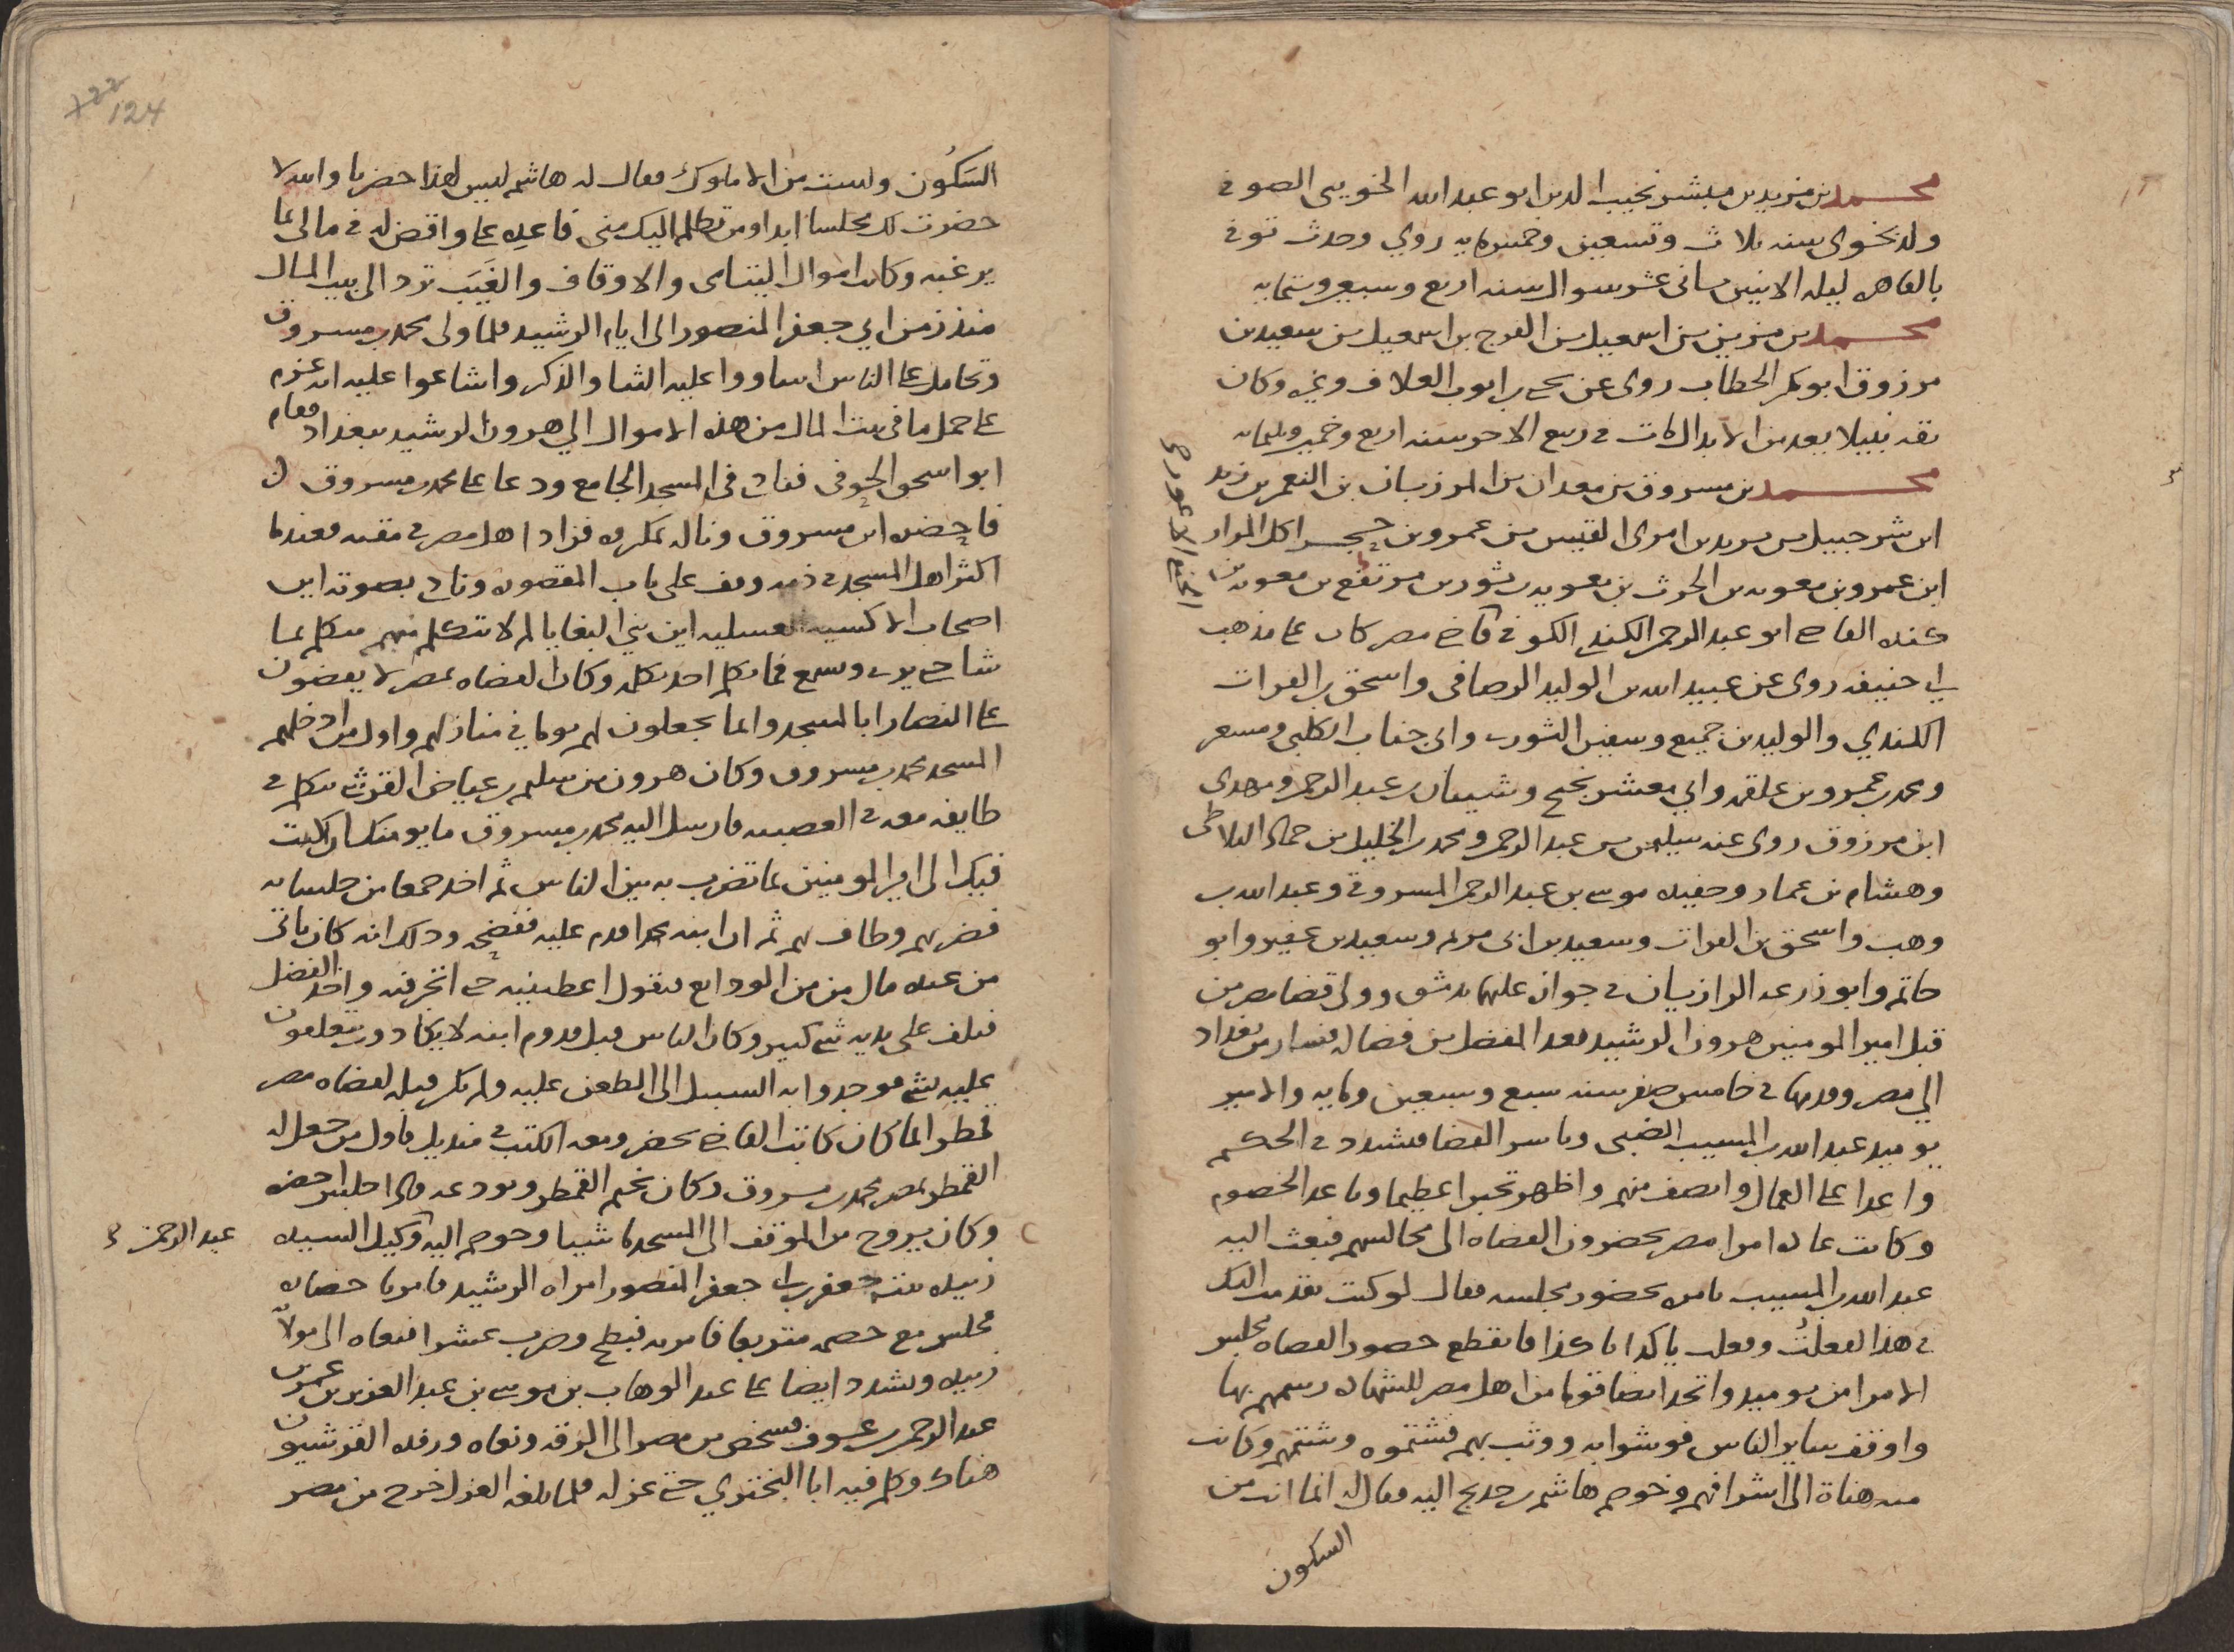 محمد بن مزيد بن مبشر نجيب الدين ابو عبد الله الخويى الصوفى
ولد بخوى سنه ثلاث وتسعين وخمسمايه روي وحدث توفى
بالقاهره ليله الاثنين ثانى عشر شوال سنه اربع وسبعين وستمايه
محمد بن مزين بن اسمعيل بن الفرج بن اسمعيل بن سعيد بن
مرزوق ابو بكر الحطاب روى عن يحيى بن ايوب العلاف وغيره وكان
ثقه نبيلا يعد من الابدال مات فى ربيع الاخر سنه اربع وخمسين وثلثمايه
محمد بن مسروق بن معدان بن المرزبان بن النعمن بن زيد
ابن شرحبيل بن يزيد بن امرى القيس بن عمرو بن حجر اكل المرار
ابن عمرو بن معويه بن الحرث بن معويه بن ثور بن مرتفع بن معويه بن
كنده القاضى ابو عبد الرحمن الكندى الكوفى قاضى مصر كان على مذهب
ابى حنيفه روى عن عبيد الله بن الوليد الوصافى واسحق بن الفرات
الكندي والوليد بن جميع وسفين الثورى وابى جناب الكلبى ومسعر
ومحمد بن عمرو بن علقمه وابي معشر نجيح وشيبان بن عبد الرحمن ومهدى
ابن مرزوق روى عنه سليمن بن عبد الرحمن ومحمد بن الخليل بن حماد البلاطى
وهشام بن عمار وحفيده موسى بن عبد الرحمن المسروقى وعبد الله بن
وهب واسحق بن الفرات وسعيد بن ابى مريم وسعيد بن عفير وابو
حاتم وابو زرعه الرازيان فى جوان عليها بدمشق وولى قضا مصر من
قبل امير المومنين هرون الرشيد بعد المفضل بن فضاله فسار من بغداد
الي مصر وقدمها فى خامس صفر سنه سبع وسبعين ومايه والامير
يوميد عبد الله بن المسيب الضبى وباشر القضا فشدد فى الحكم
واعدا على العمال وانصف منهم واظهر تجبرا عظيما وباعد الخصوم
وكانت عاده امرا مصر يحضرون القضاه الى مجالسهم فبعث اليه
عبد الله بن المسيب يامره بحضور مجلسه فقال لو كنت تقدمت اليك
فى هذا لفعلتُ وفعلت يا كذا يا كذا فانقطع حضور القضاه مجلس
الامرا من يوميد واتخذ ايضا قوما من اهل مصر للشهاده وسمهم بها
واوقف ساير الناس فوثبوا به ووثب بهم فشتموه وشتمهم وكانت
منه هناة الى اشرافهم وخوصم هاشم بن حديج اليه فقال له انما انت من
السكون
السَكُون ولست من الاملوك فقال له هاشم ليس لهذا حضرنا والله لا
حضرت لك مجلسا ابدا ومن تظلم اليك منى فاعده على واقض له فى مالى بما
يرغبه وكانت اموال اليتامى والاوقاف والغَيَب ترد الى بيت المال
منذ زمن ابي جعفر المنصور الى ايام الرشيد فلما ولى محمد بن مسروق
وتحامل على الناس اساووا عليه الثنا والذكر واشاعوا عليه انه عزم
على حمل ما فى بيت المال من هذه الاموال الي هرون الرشيد ببغداد فقام
ابو اسحق الحوفى فنادى فى المسجد الجامع ودعا على محمد بن مسروق
فاحضره ابن مسروق وناله بمكروه فزاد اهل مصر فى مقته فعندما
اكثر اهل المسجد فى ذمه وقف على باب المقصوره ونادى بصوته اين
اصحاب الاكسيه العسليه اين بني البغايا لم لا يتكلم منهم متكلم بما
شا حتى يرى ويسمع فما تكلم احد بكلمه وكان القضاه بمصر لا يقضون
على النصارا بالمسجد وانما يجعلون لهم يوما في منازلهم واول من ادخلهم
المسجد محمد بن مسروق وكان هرون بن سليم بن عياض القرشى يتكلم فى
طايفه معه فى العصبيه فارسل اليه محمد بن مسروق
فيك الى امير المومنين بما تضرب به بين الناس ثم اخد جمعا من جلسايه
فضربهم وطاف بهم ثم ان ابنه محمدا قدم عليه ففضحه وذلك انه كان ياتى
من عنده مال من من الودايع فيقول اعطينيه حتى اتجر فيه واخد الفضل
فتلف على يديه شى كبير وكان الناس قبل قدوم ابنه لا يكادون يتعلقون
عليه بشى فوجدوا به السبيل الى الطعن عليه ولم يكن قبله لقضاه مصر
قمطر انما كان كاتب القاضى يحضر ومعه الكتب فى منديل فاول من جعل له
القمطر بمصر محمد بن مسروق وكان يختم القمطر ويودعه فاذا جلس احضره
وكان يروح من الموقف الى المسجد ماشيا وخوصم اليه وكيل السيده
عبد الرحمن
زبيده بنت جعفر بن ابى جعفر المنصور امراه الرشيد فامر باحضاره
فجلس مع خصمه متربعا فامر به فبطح وضرب عشرا فنعاه الى مولاته
زبيده وشدد ايضا على عبد الوهاب بن موسى بن عبد العزيز بن عمر بن
عبد الرحمن بن عوف فشخص من مصر الى الرقه ونعاه ورفده القرشيون
هناك وكلم فيه ابا البختري حتى عزله فلما بلغه العزل خرج من مصر
124